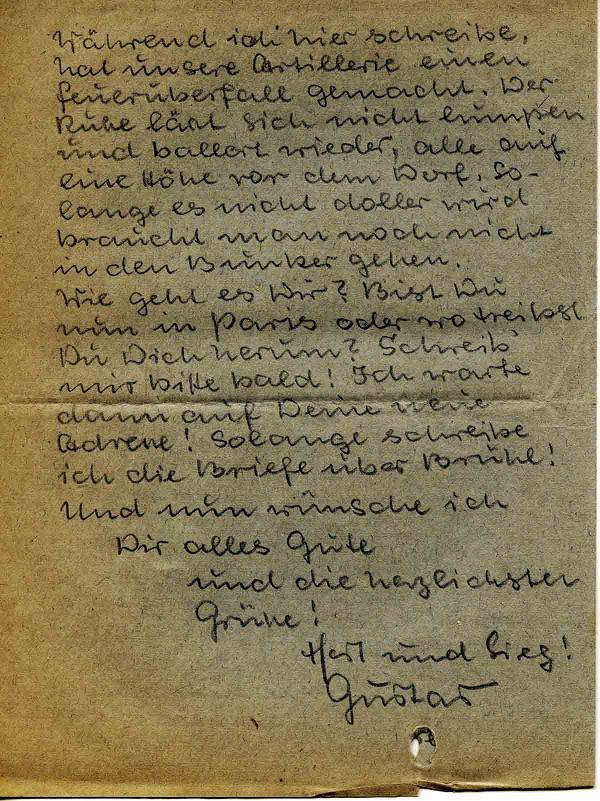 Während ich hier schreibe,
hat unsere Artillerie einen
Feuerüberfall gemacht. Der
Ruhe läßt sich nicht lumpen
und ballert wieder, alle auf
eine Höhe vor dem Dorf. So-
lange es nicht doller wird
braucht man noch nicht
in den Bunker gehen.
Wie geht es Dir? Bist Du
nun in Paris oder wo treibst
Du Dich herum? Schreib'
mir bitte bald! Ich warte
dann auf Deine neue
Adresse! Solange schreibe
ich die Briefe über Brühl!
Und nun wünsche ich
Dir alles Gute
und die herzlichsten
Grüße!
Heil und Sieg!
Gustav